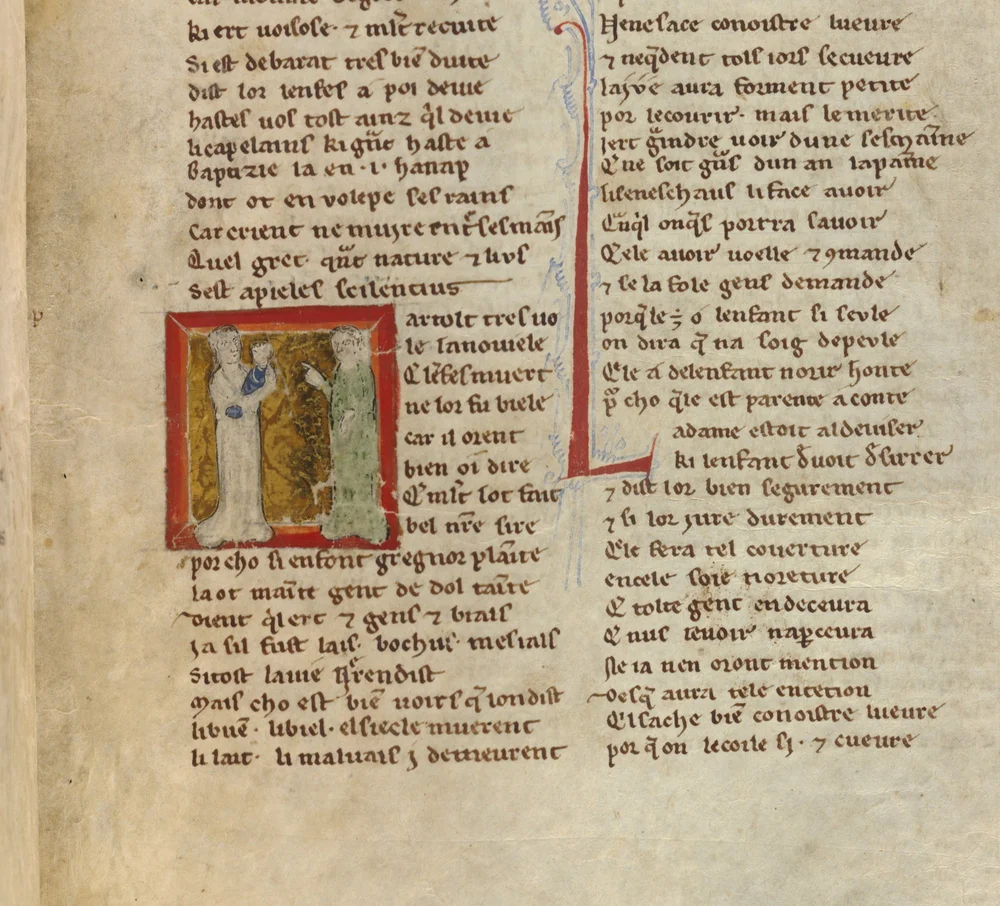 ki ert uoisose · ⁊ ml̃t recuite
Si est debarat tres biẽ duite
dist lor ienfes a poi deuie
hastes uos tost ainz q̃l deuie
li capelains ki gñt haste a
Baptizie la en · i · hanap
dont ot en volepe ses rains
Car crient ne muire entͬ ses mãis
Quel gret · qñt nature ⁊ lius
Sest apieles scilencius
p
artolt tres uo
le la nouiele
Q lẽfes muert
ne lor fu biele
car il orent
bien oi dire
Q ml̃t lot fait
bel nr̃e sire
por cho si en font gregnor plãite
la ot mãite gent de dol tãite
dient q̃l ert ⁊ gens ⁊ biaus
Ja sil fust lais · bochus · mesiaus
Si tost la uie
Mais cho est biẽ uoirs q̃ ion dist
li buẽ · li biel · el siecle muerent
li lait · li maluais j demeurent
Nene face conoistre lueure
⁊ neq̃dent tols iors secueure
forment petite
por lecourir · mais le merite
iert g̃indre uoir dune
Que soit gñs dun an
li seneschaus li face auoir
onq̃s portra sauoir
Cele auoir uoelle ⁊ 9mande
⁊ se la fole gens demande
porq̃ le ÷ o lenfant si seule
on dira q̃ na soig de peule
Ele a delenfant norir honte
p̃ cho q̃le est parente a conte
adame estoit al deuiser
ki lenfant d̃uoit
⁊ dist lor bien segurement
⁊ si lor iure durement
Ele fera tel couerture
en cele soie noreture
Q tolte gent en deceura
Q nus
Ne ia nen oront mention
Desq̃ aura tele entẽtion
Q l sache biẽ conoistre lueure
por q̃ on le coile si · ⁊ cueure